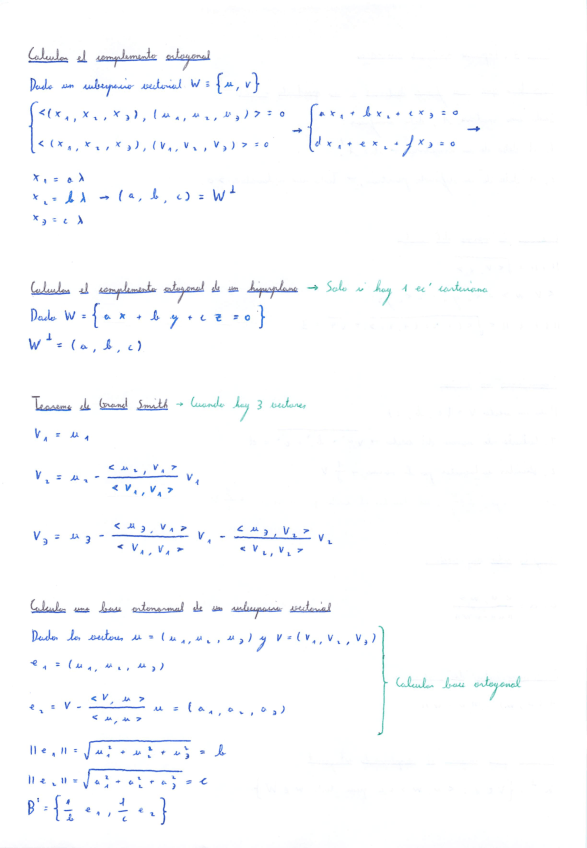 Calcular el complemento ortogonal
Dado un subespacio vectorial W = {u, v}
{ <(x₁, x₂, x₃), (u₁, u₂, u₃)> = 0 → { ax₁ + bx₂ + cx₃ = 0 →
<(x₁, x₂, x₃), (v₁, v₂, v₃)> = 0 dx₁ + ex₂ + fx₃ = 0
x₁ = aλ
x₂ = bλ → (a, b, c) = W⊥
x₃ = cλ
Calcular el complemento ortogonal de un hiperplano → Solo si hay 1 ec' cartesiana
Dado W = {ax + by + cz = 0}
W⊥ = (a, b, c)
Teorema de Grand Smith → Cuando hay 3 vectores
V₁ = u₁
V₂ = u₂ - <u₂, V₁> / <V₁, V₁> V₁
V₃ = u₃ - <u₃, V₁> / <V₁, V₁> V₁ - <u₃, V₂> / <V₂, V₂> V₂
Calcular una base ortonormal de un subespacio vectorial
Dados los vectores u = (u₁, u₂, u₃) y V = (V₁, V₂, V₃)
e₁ = (u₁, u₂, u₃)
Calcular base ortogonal
e₂ = V - <V, u> / <u, u> u = (a₁, a₂, a₃)
||e₁|| = √(u₁² + u₂² + u₃²) = b
||e₂|| = √(a₁² + a₂² + a₃²) = c
B' = {1/b e₁, 1/c e₂}